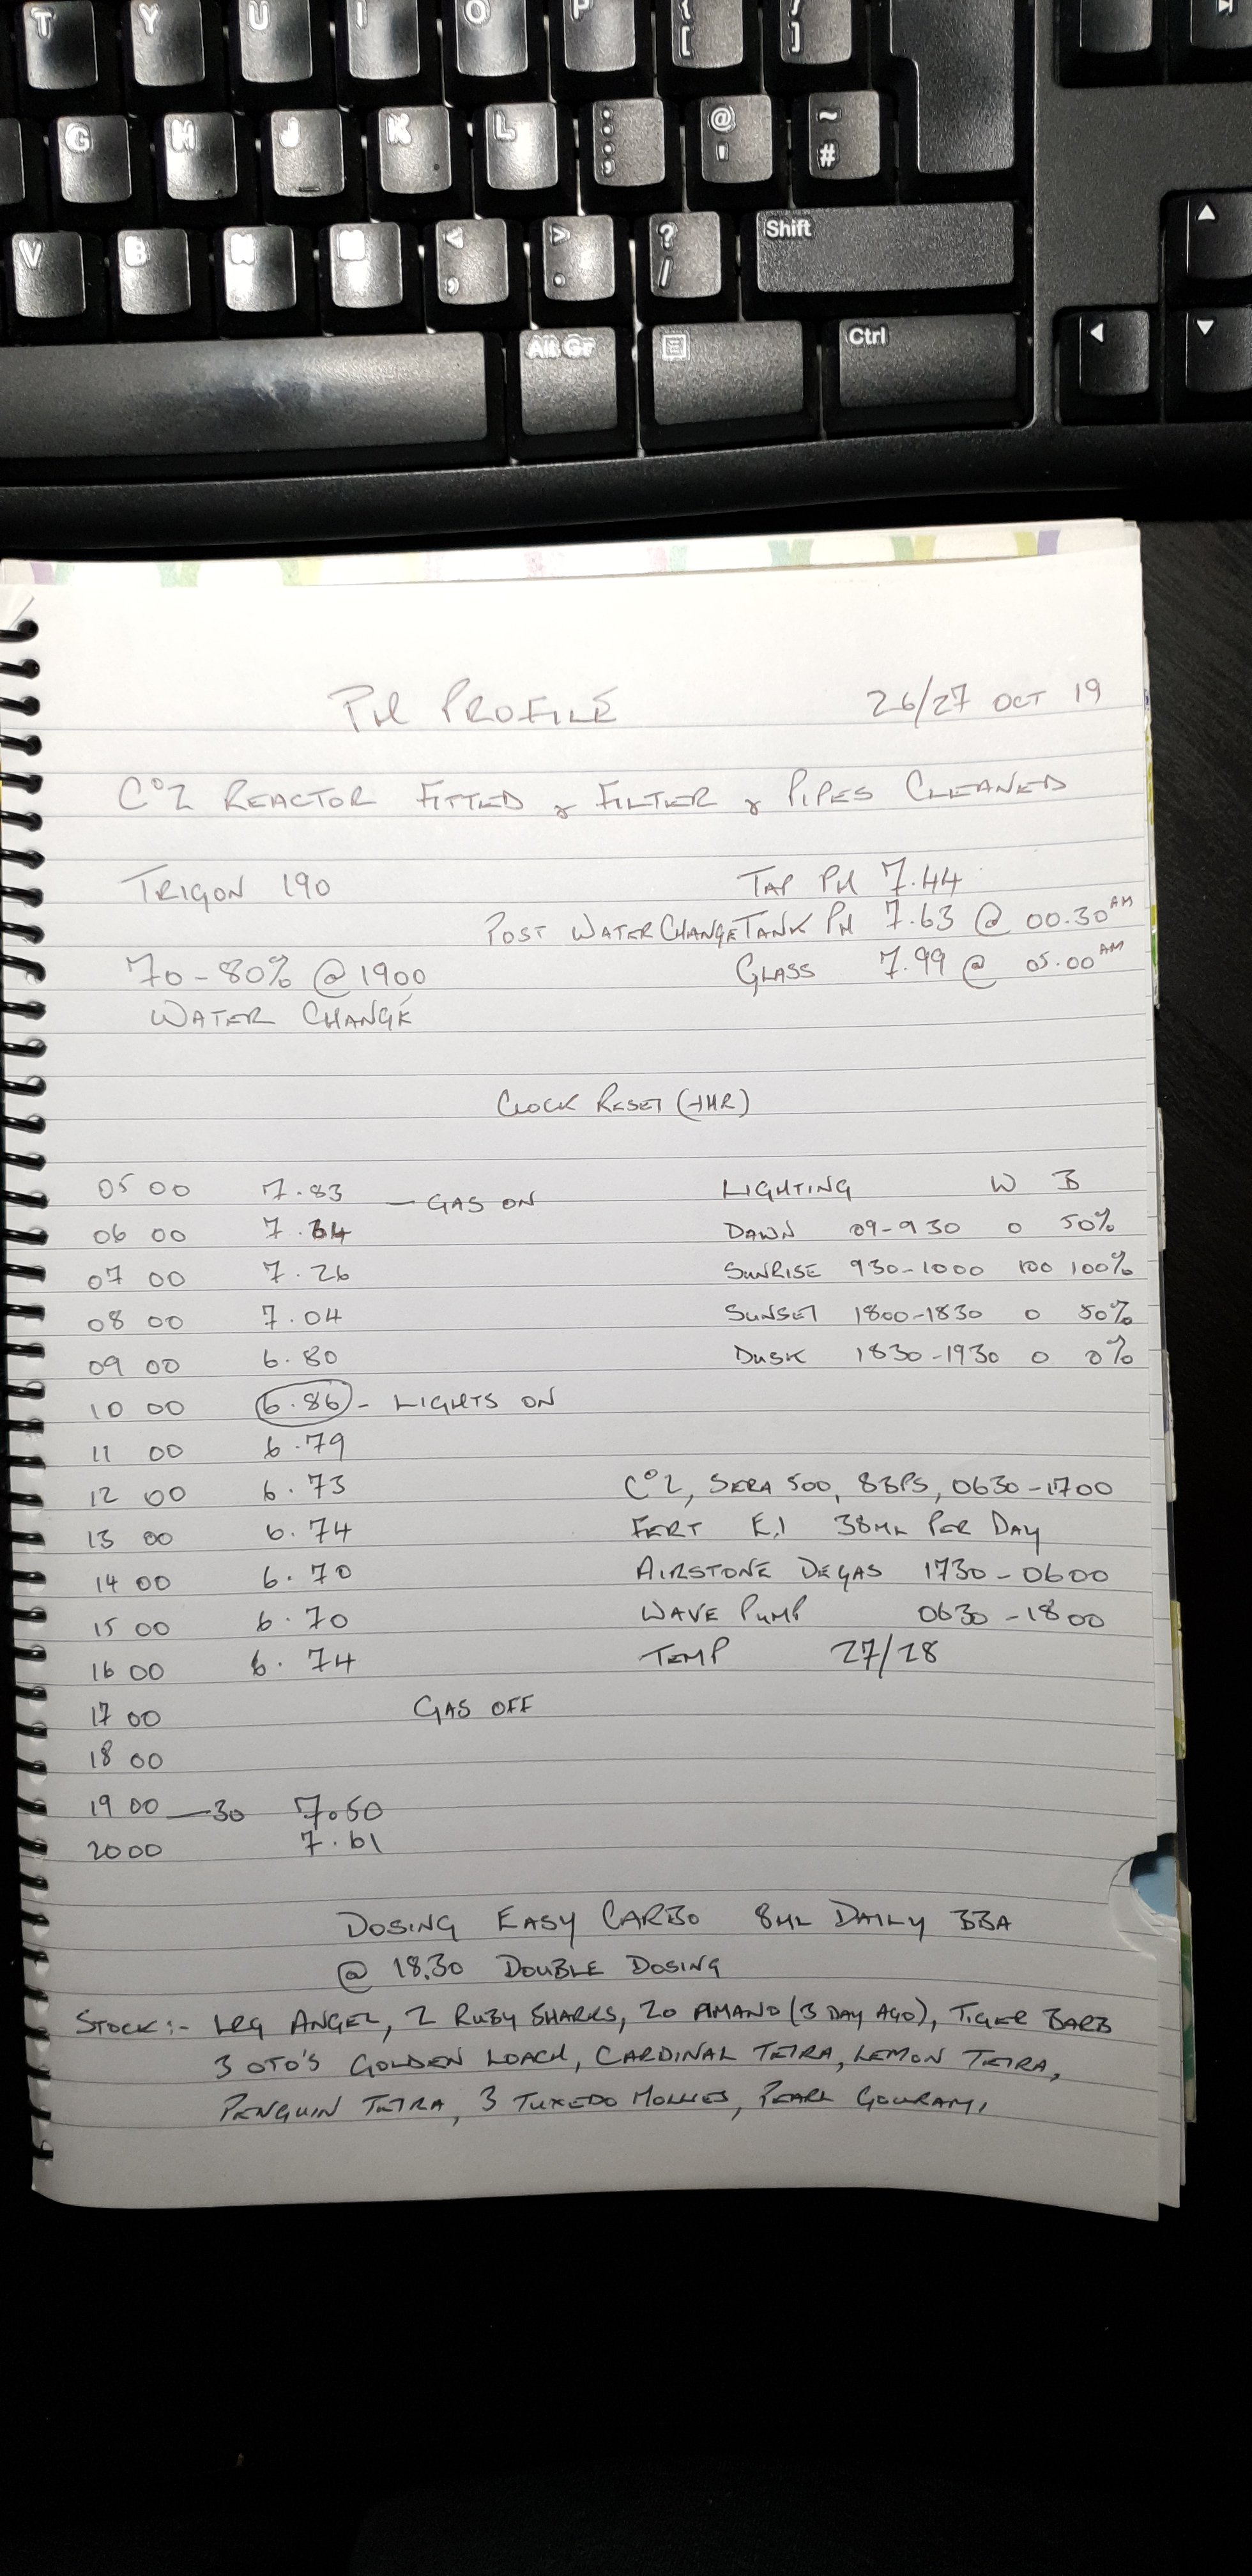 T Y U I O P { [ } ]
G H J K L : ; @ ' ~ #
V B N M < , > . ? / Shift
Alt Gr Ctrl
PH PROFILE 26/27 OCT 19
CO2 REACTOR FITTED & FILTER & PIPES CLEANED
TRIGON 190 TAP PH 7.44
POST WATER CHANGE TANK PH 7.63 @ 00.30 AM
70-80% @ 1900 GLASS 7.99 @ 05.00 AM
WATER CHANGE
CLOCK RESET (-1HR)
05 00 7.83 — GAS ON LIGHTING W B
06 00 7.64 DAWN 09-930 0 50%
07 00 7.26 SUNRISE 930-1000 100 100%
08 00 7.04 SUNSET 1800-1830 0 50%
09 00 6.80 DUSK 1830-1930 0 0%
10 00 6.86 - LIGHTS ON
11 00 6.79
12 00 6.73 CO2, SERA 500, 8BPS, 0630-1700
13 00 6.74 FERT E.I 38ML PER DAY
14 00 6.70 AIRSTONE DEGAS 1730-0600
15 00 6.70 WAVE PUMP 0630-1800
16 00 6.74 TEMP 27/28
17 00 GAS OFF
18 00
19 00 —30 7.50
20 00 7.61
DOSING EASY CARBO 8ML DAILY BBA
@ 18.30 DOUBLE DOSING
STOCK:- LRG ANGEL, 2 RUBY SHARKS, 20 AMANO (3 DAY AGO), TIGER BARB
3 OTO'S GOLDEN LOACH, CARDINAL TETRA, LEMON TETRA,
PENGUIN TETRA, 3 TUXEDO MOLLIES, PEARL GOURAMI